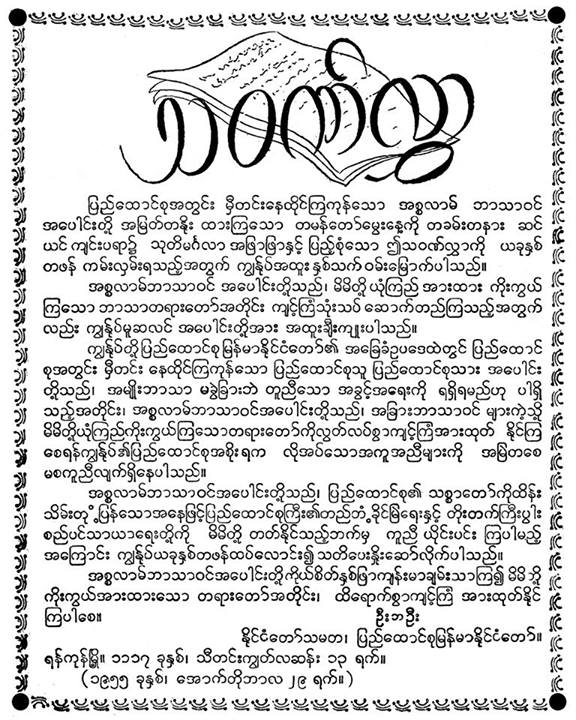 သဝဏ်လွှာ
ပြည်ထောင်စုအတွင်း မှီတင်းနေထိုင်ကြကုန်သော အစ္စလာမ် ဘာသာဝင်
အပေါင်းတို့ အမြတ်တနိုး ထားကြသော တမန်တော်မွေးနေ့ကို တခမ်းတနား ဆင်
ယင် ကျင်းပရာ၌ သုတိမင်္ဂလာ အဖြာဖြာနှင့် ပြည့်စုံသော ဤသဝဏ်လွှာကို ယခုနှစ်
တဖန် ကမ်းလှမ်းရသည့်အတွက် ကျွန်ုပ်အထူးနှစ်သက်ဝမ်းမြောက်ပါသည်။
အစ္စလာမ်ဘာသာဝင် အပေါင်းတို့သည်၊ မိမိတို့ ယုံကြည် အားထား ကိုးကွယ်
ကြသော ဘာသာတရားတော်အတိုင်း ကျင့်ကြံသုံးသပ် ဆောက်တည်ကြသည့်အတွက်
လည်း ကျွန်ုပ်မူဆလင် အပေါင်းတို့အား အထူးချီးကျူးပါသည်။
ကျွန်ုပ်တို့ပြည်ထောင်စုမြန်မာနိုင်ငံတော်၏ အခြေခံဥပဒေထဲတွင် ပြည်ထောင်
စုအတွင်း မှီတင်း နေထိုင်ကြကုန်သော ပြည်ထောင်စုသူ ပြည်ထောင်စုသား အပေါင်း
တို့သည်၊ အမျိုးဘာသာ မခွဲခြားဘဲ တူညီသော အခွင့်အရေးကို ရရှိရမည်ဟု ပါရှိ
သည့်အတိုင်း၊ အစ္စလာမ်ဘာသာဝင်အပေါင်းတို့သည်၊ အခြားဘာသာဝင် များကဲ့သို့
မိမိတို့ယုံကြည်ကိုးကွယ်ကြသောတရားတော်ကိုလွတ်လပ်စွာကျင့်ကြံအားထုတ် နိုင်ကြ
စေရန်ကျွန်ုပ်၏ပြည်ထောင်စုအစိုးရက လိုအပ်သောအကူအညီများကို အမြဲတစေ
မစကူညီလျက်ရှိနေပါသည်။
အစ္စလာမ်ဘာသာဝင်အပေါင်းတို့သည်၊ ပြည်ထောင်စု၏ သစ္စာတော်ကိုထိန်း
သိမ်းတုံ့ပြန်သောအနေဖြင့်ပြည်ထောင်စုကြီး၏တည်တံ့ခိုင်မြဲရေးနှင့် တိုးတက်ကြီးပွါး
စည်ပင်သာယာရေးတို့ကို မိမိတို့ တတ်နိုင်သည့်ဘက်မှ ကူညီ ယိုင်းပင်း ကြပါမည့်
အကြောင်း ကျွန်ုပ်ယခုနှစ်တဖန်ထပ်လောင်း၍ သတိပေးနှိုးဆော်လိုက်ပါသည်။
အစ္စလာမ်ဘာသာဝင်အပေါင်းတို့ကိုယ်စိတ်နှစ်ဖြာကျန်းမာချမ်းသာကြ၍ မိမိတို့
ကိုးကွယ်အားထားသော တရားတော်အတိုင်း၊ ထိရောက်စွာကျင့်ကြံ အားထုတ်နိုင်
ကြပါစေ။
ဦးဘဦး
နိုင်ငံတော်သမတ၊ ပြည်ထောင်စုမြန်မာနိုင်ငံတော်။
ရန်ကုန်မြို့။ ၁၃၁၇ ခုနှစ်၊ သီတင်းကျွတ်လဆန်း ၁၃ ရက်။
(၁၉၅၅ ခုနှစ်၊ အောက်တိုဘာလ ၂၉ ရက်။)